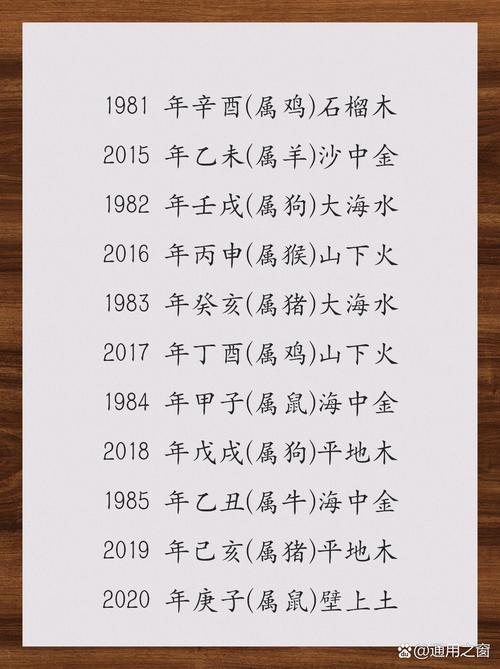 1981 年辛酉(属鸡)石榴木
2015 年乙未(属羊)沙中金
1982 年壬戌(属狗)大海水
2016 年丙申(属猴)山下火
1983 年癸亥(属猪)大海水
2017 年丁酉(属鸡)山下火
1984 年甲子(属鼠)海中金
2018 年戊戌(属狗)平地木
1985 年乙丑(属牛)海中金
2019 年己亥(属猪)平地木
2020 年庚子(属鼠)壁上土
@通用之窗